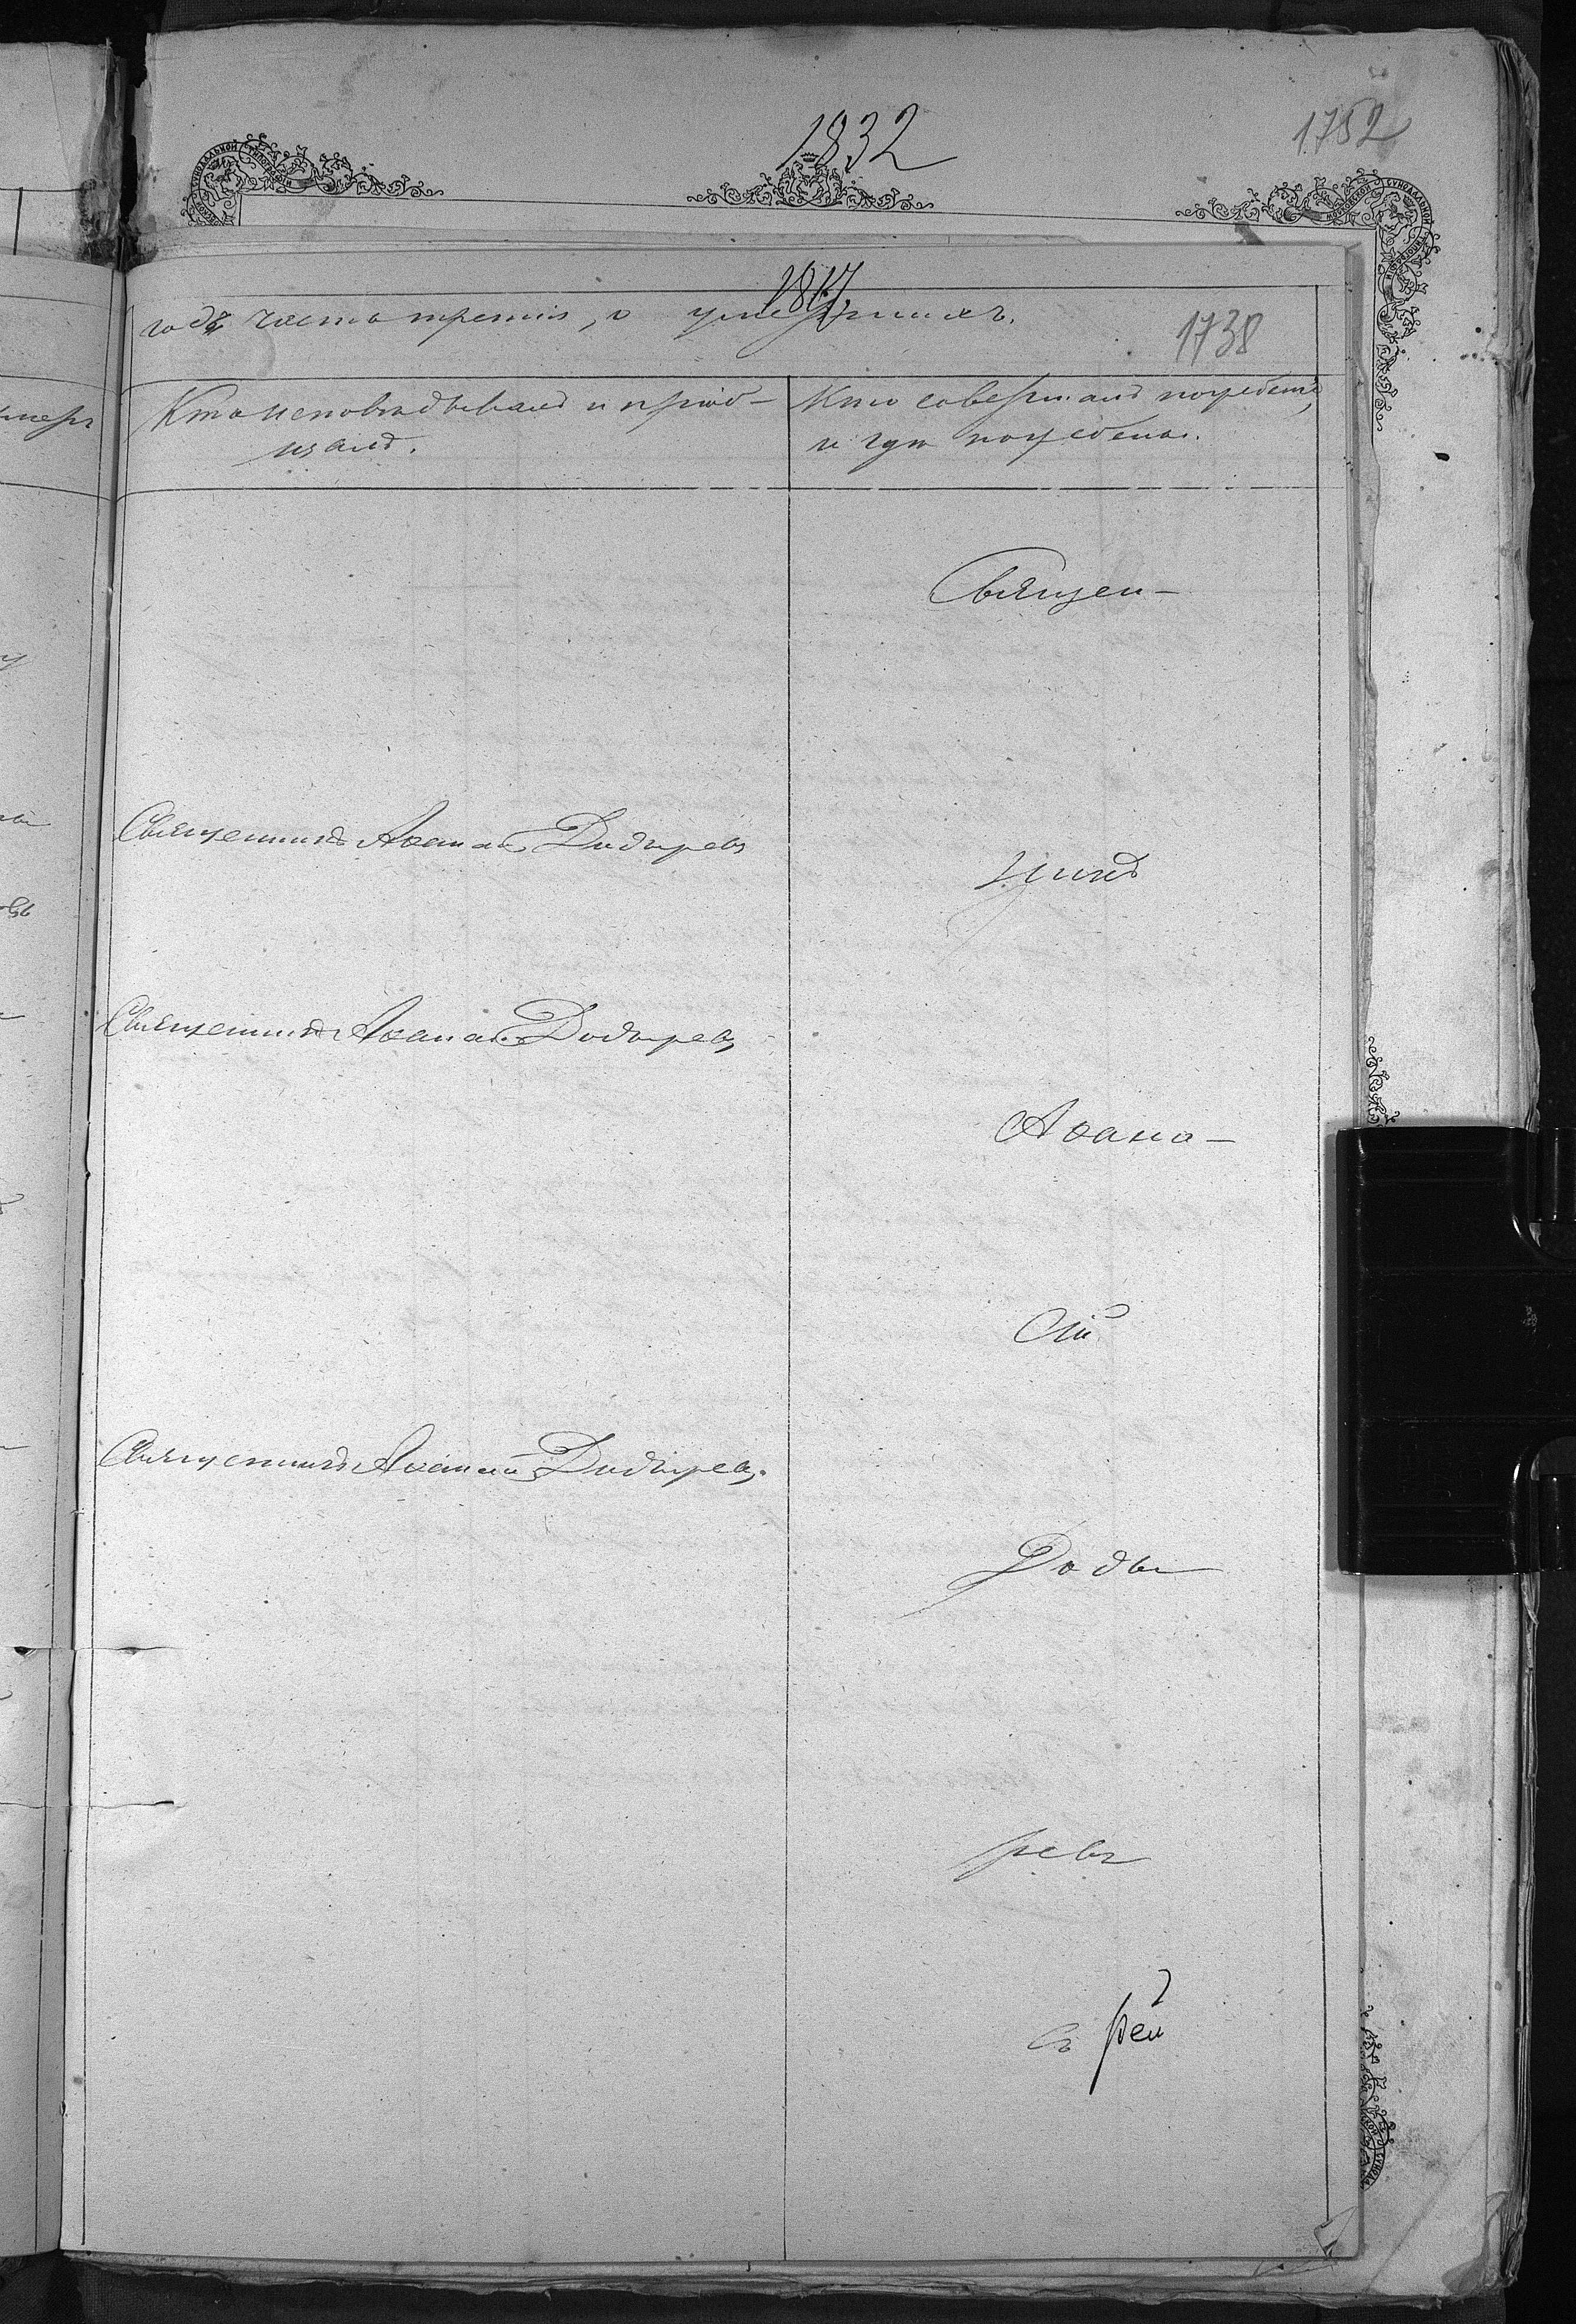 1832
1752
МОСКОВСКОЙ СУНОДАЛЬНОЙ ТИПОГРАФІИ
1817.
годъ часть третія, о умершихъ.
1738
Кто исповѣдывалъ и пріоб-
щалъ.
Кто совершалъ погребеніе,
и гдѣ погребены.
Священ-
Священникъ Аѳанасій Додыревъ
никъ
Священникъ Аѳанасій Додыревъ
Аѳана-
сій
Священникъ Аѳанасій Додыревъ.
Доды
ревъ
съ